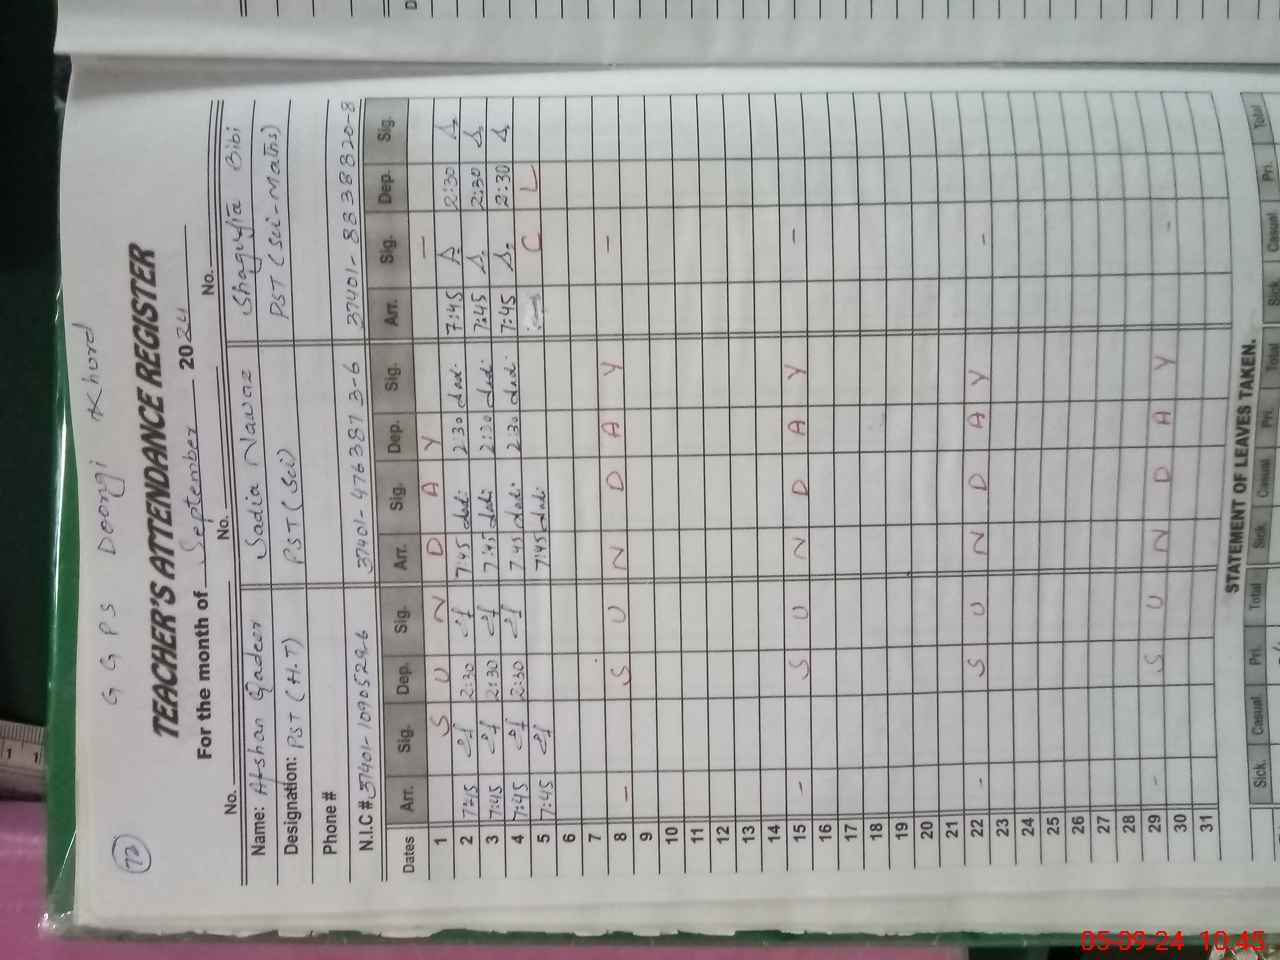 72
G G PS Doongi Khord
TEACHER'S ATTENDANCE REGISTER
For the month of September 2024
No. No. No.
Name: Afshan Qadeer Sadia Nawaz Shagufta Bibi
Designation: PST (H.T) PST (Sci) PST (Sci-Maths)
Phone #
N.I.C # 37401-10905296 37401-4763873-6 37401-8838820-8
Dates Arr. Sig. Dep. Sig. Arr. Sig. Dep. Sig. Arr. Sig. Dep. Sig.
1 S U N D A Y —
2 7:45 2:30 7:45 2:30 7:45 2:30
3 7:45 2:30 7:45 2:30 7:45 2:30
4 7:45 2:30 7:45 2:30 7:45 2:30
5 7:45 7:45 C L
6
7
8 — S U N D A Y —
9
10
11
12
13
14
15 - S U N D A Y -
16
17
18
19
20
21
22 - S U N D A Y -
23
24
25
26
27
28
29 - S U N D A Y -
30
31
STATEMENT OF LEAVES TAKEN.
Sick. Casual Pri. Total Sick Casual Pri. Total Sick Casual Pri. Total
05-09-24 10:45